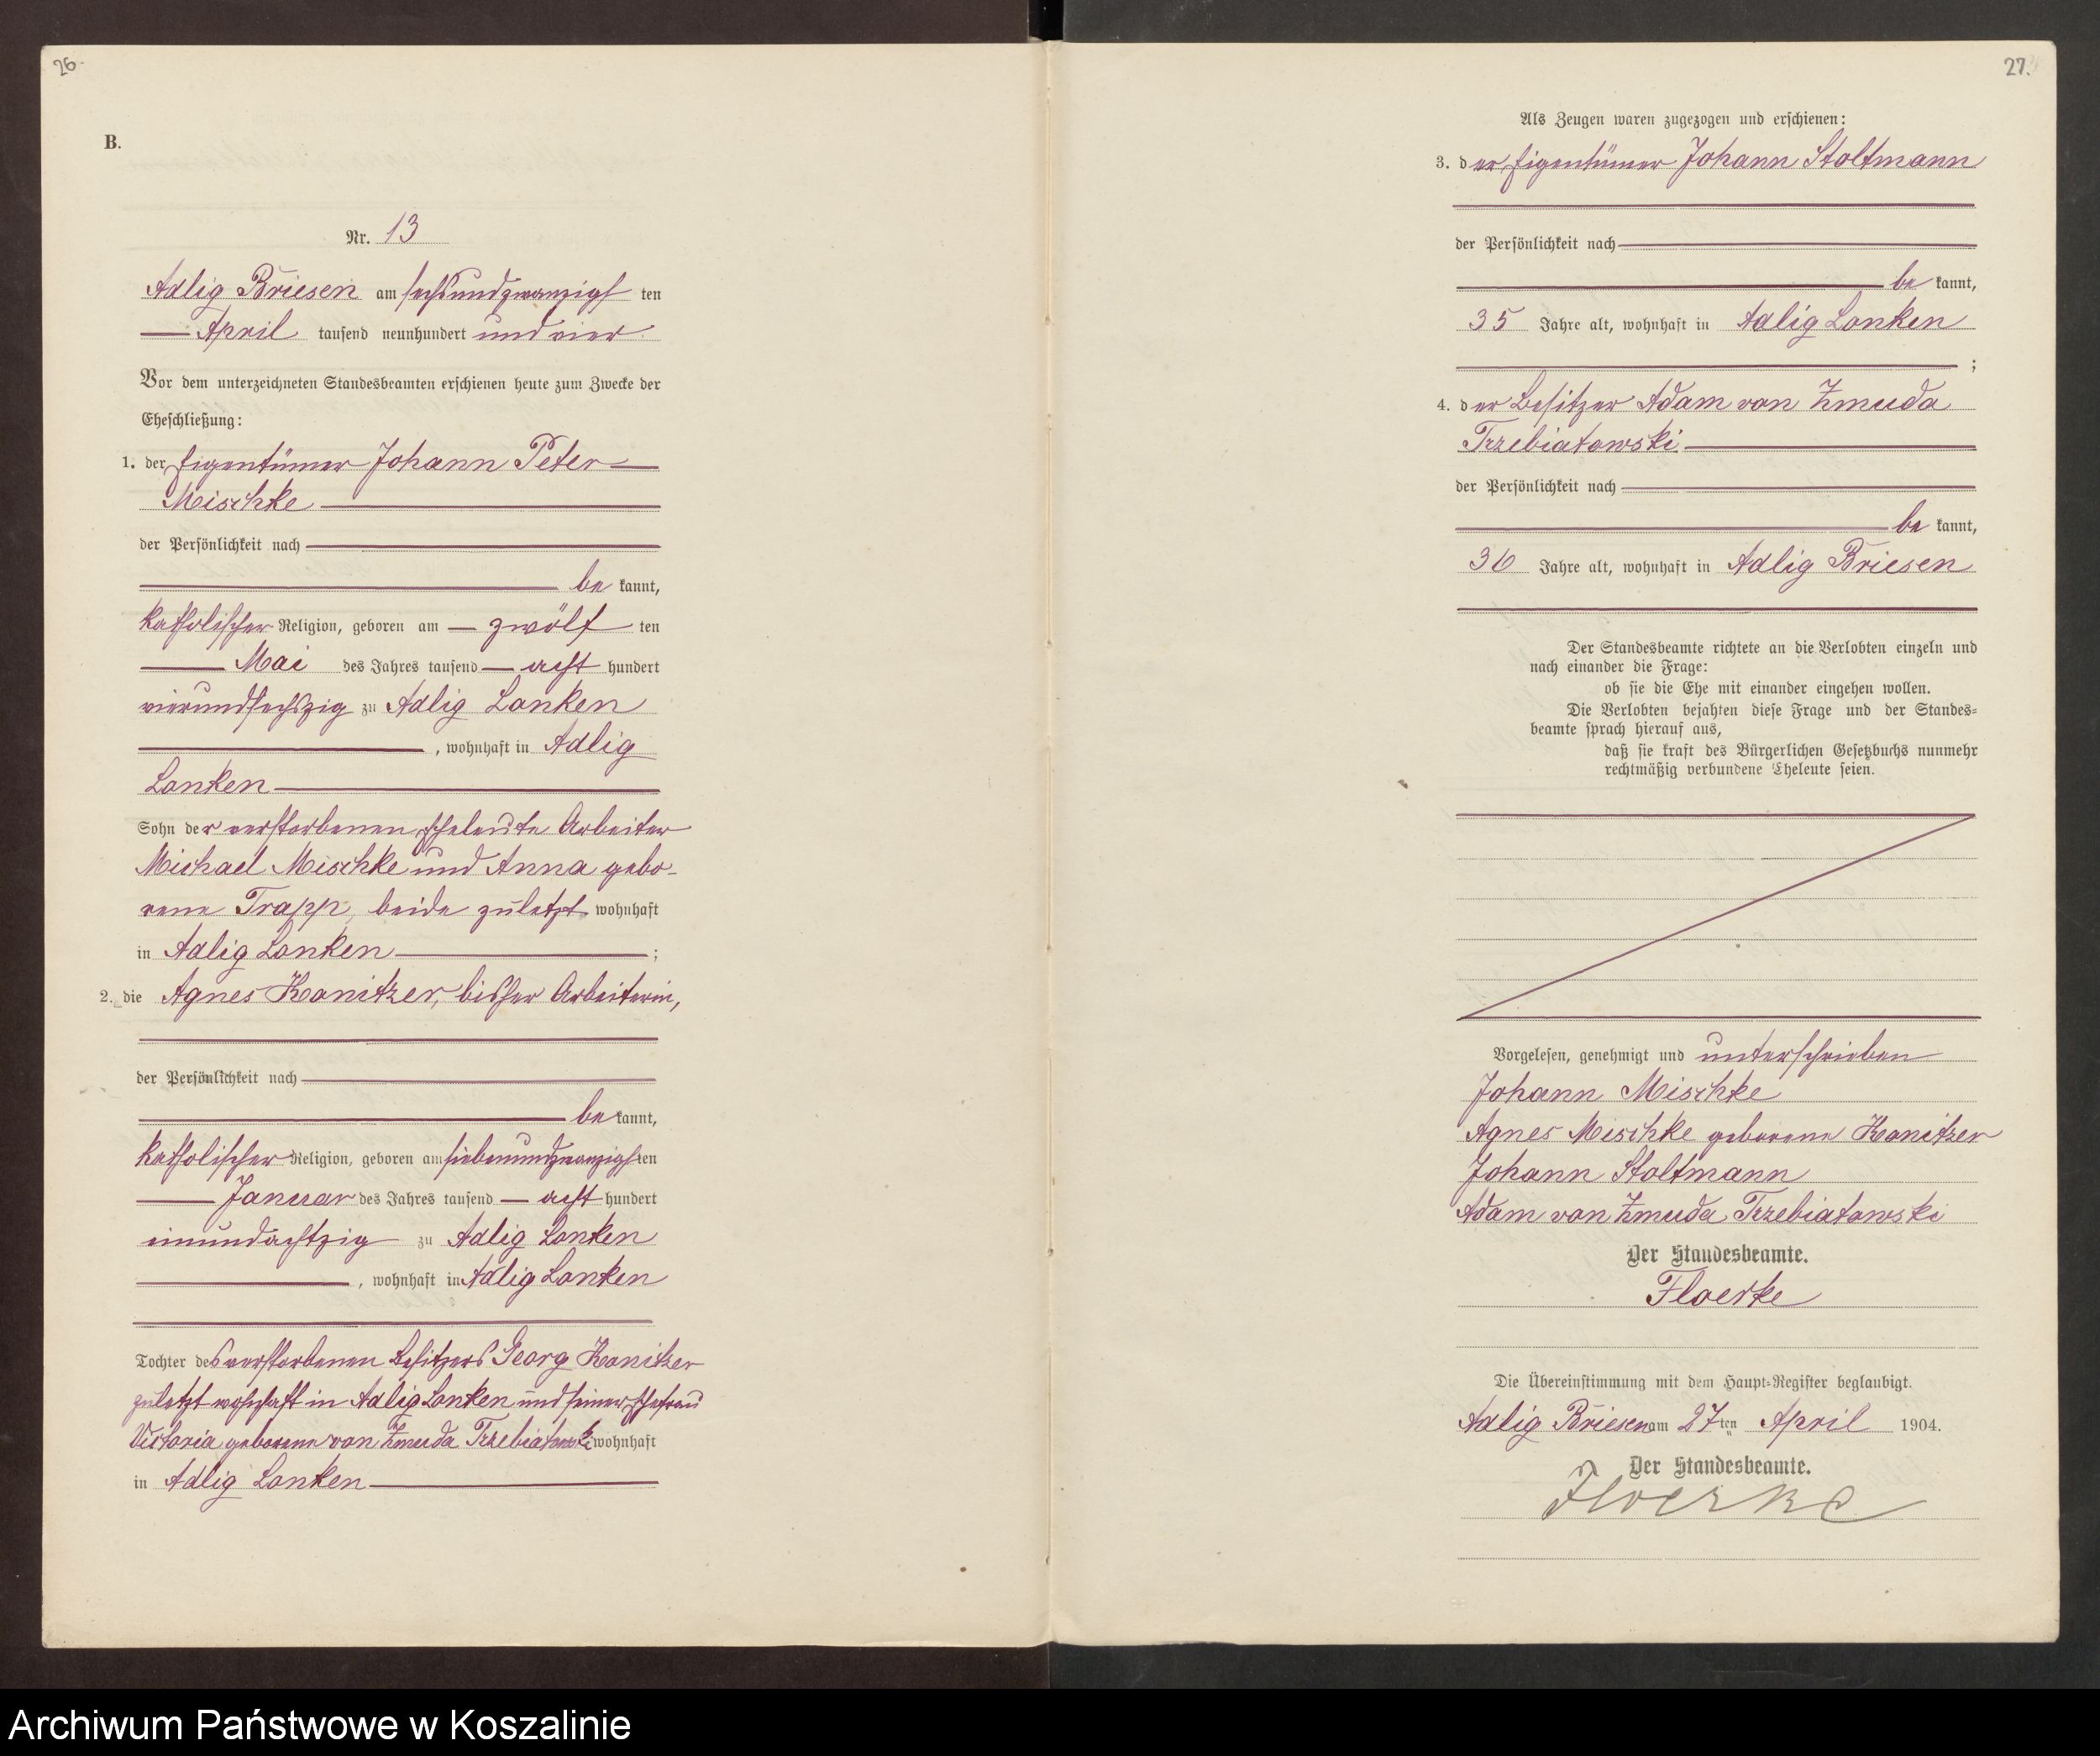 26.
B.
Nr. 13
Adlig Briesen am sechsundzwanzigsten
April tausend neunhundert und vier
Vor dem unterzeichneten Standesbeamten erschienen heute zum Zwecke der
Eheschließung:
1. der Eigentümer Johann Peter
Mischke
der Persönlichkeit nach
be kannt,
katholischer Religion, geboren am zwölf ten
Mai des Jahres tausend acht hundert
vierundsechszig zu Adlig Lonken
, wohnhaft in Adlig
Lonken
Sohn der verstorbenen Eheleute Arbeiter
Michael Mischke und Anna gebo-
rene Trapp, beide zuletzt wohnhaft
in Adlig Lonken ;
2. die Agnes Kanitzer, bisher Arbeiterin,
der Persönlichkeit nach
be kannt,
katholischer Religion, geboren am siebenundzwanzigsten
Januar des Jahres tausend acht hundert
einundachtzig zu Adlig Lonken
, wohnhaft in Adlig Lonken
Tochter des verstorbenen Besitzers Georg Kanitzer
zuletzt wohnhaft in Adlig Lonken und seiner Ehefrau
Victoria geborene von Zmuda Trzebiatowski wohnhaft
in Adlig Lonken
27.
Als Zeugen waren zugezogen und erschienen:
3. der Eigentümer Johann Stoltmann
der Persönlichkeit nach
be kannt,
35 Jahre alt, wohnhaft in Adlig Lonken
;
4. der Besitzer Adam von Zmuda
Trzebiatowski
der Persönlichkeit nach
be kannt,
36 Jahre alt, wohnhaft in Adlig Briesen
Der Standesbeamte richtete an die Verlobten einzeln und
nach einander die Frage:
ob sie die Ehe mit einander eingehen wollen.
Die Verlobten bejahten diese Frage und der Standes=
beamte sprach hierauf aus,
daß sie kraft des Bürgerlichen Gesetzbuchs nunmehr
rechtmäßig verbundene Eheleute seien.
Vorgelesen, genehmigt und unterschrieben
Johann Mischke
Agnes Mischke geborene Kanitzer
Johann Stoltmann
Adam von Zmuda Trzebiatowski
Der Standesbeamte.
Floerke
Die Übereinstimmung mit dem Haupt=Register beglaubigt.
Adlig Briesen am 27ten April 1904.
Der Standesbeamte.
Floerke
Archiwum Państwowe w Koszalinie